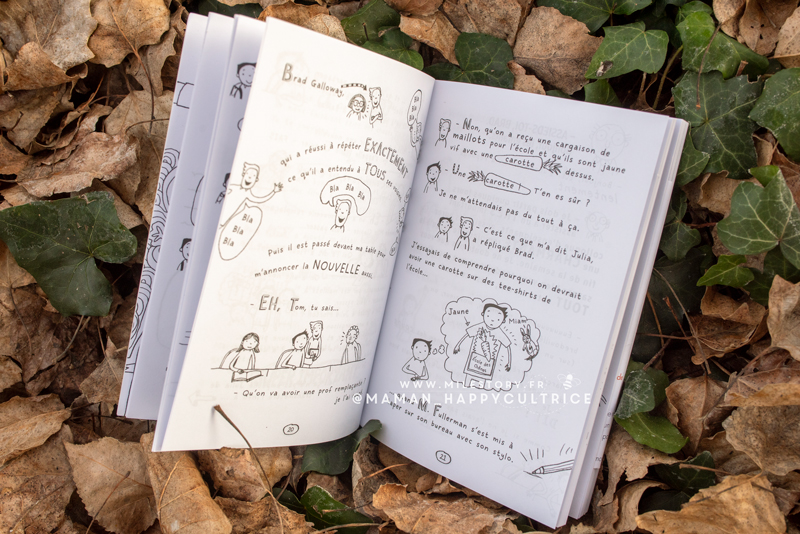 Brad Galloway,
Bla
Bla
Bla
qui a réussi à répéter EXACTEMENT
ce qu'il a entendu à TOUS ses
Bla Bla Bla
Bla
Bla
Bla
Puis il est passé devant ma table pour
m'annoncer la NOUVELLE aussi.
- EH, Tom, tu sais...
- Qu'on va avoir une prof remplaçante ?
je l'ai
20
- Non, qu'on a reçu une cargaison de
maillots pour l'école et qu'ils sont jaune
vif avec une carotte dessus.
- Une carotte ! T'en es sûr ?
Je ne m'attendais pas du tout à ça.
- c'est ce que m'a dit Julia,
a répliqué Brad.
J'essayais de comprendre pourquoi on devrait
avoir une carotte sur des tee-shirts de
l'école...
Jaune
Miam
École des
Chênes
WWW.MILESTORY.FR
@MAMAN_HAPPYCULTRICE
M. Fullerman s'est mis à
per sur son bureau avec son stylo.
21